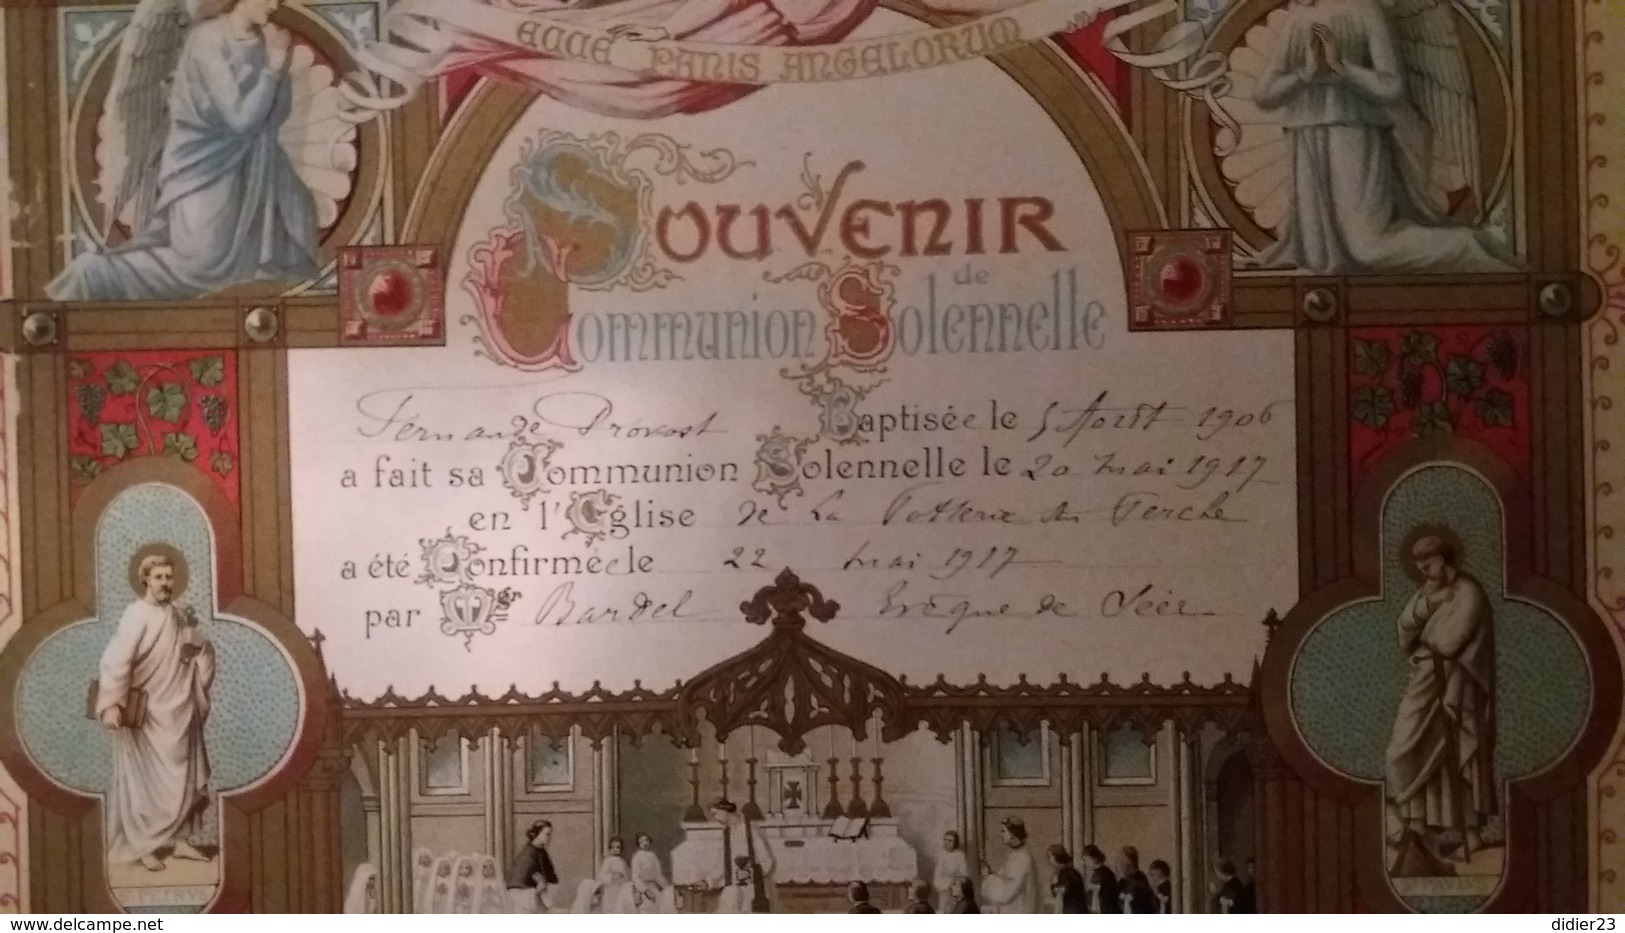 ECCE PANIS ANGELORUM
SOUVENIR
de
Communion Solennelle
Fernande Provost Baptisée le 5 Août 1906
a fait sa Communion Solennelle le 20 mai 1917
en l'Eglise de La Potterie au Perche
a été Confirmée le 22 mai 1917
par Mgr Bardel Evêque de Séez
PETRVS
PAVLVS
www.delcampe.net
didier23